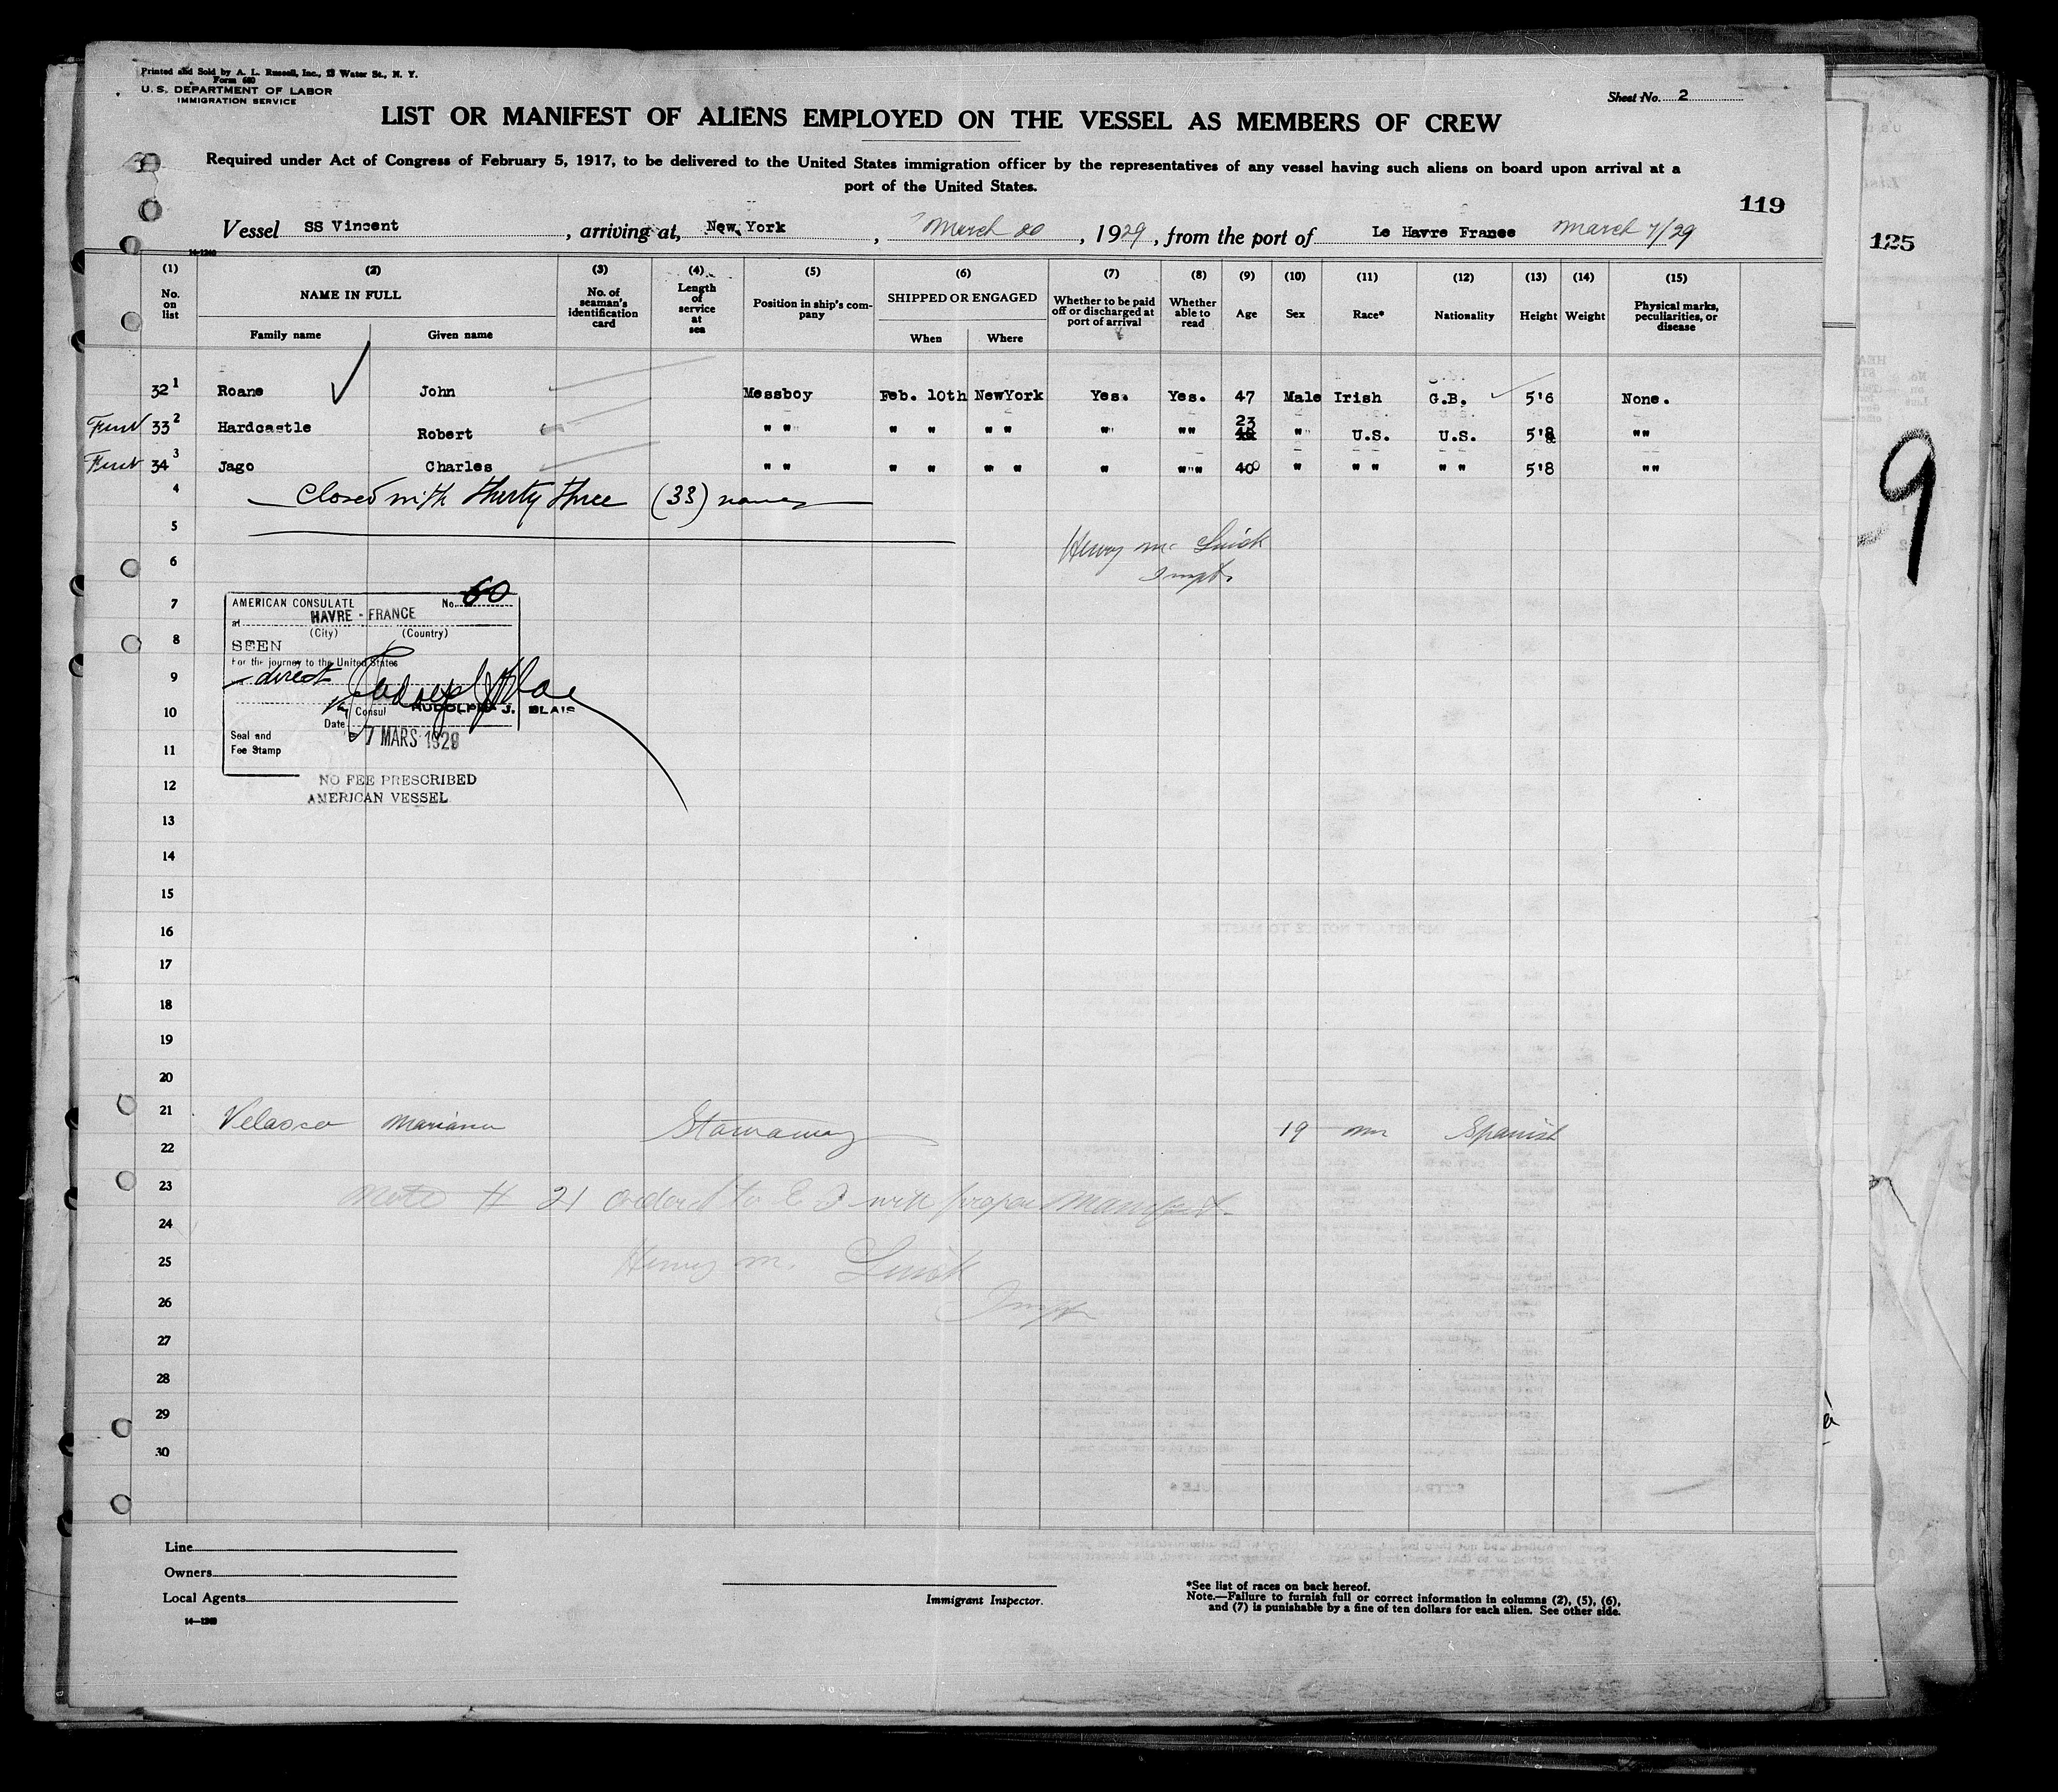 Printed and Sold by A. L. Russell, Inc., 13 Water St., N. Y.
Form 680
U. S. DEPARTMENT OF LABOR
IMMIGRATION SERVICE
Sheet No. 2
LIST OR MANIFEST OF ALIENS EMPLOYED ON THE VESSEL AS MEMBERS OF CREW
Required under Act of Congress of February 5, 1917, to be delivered to the United States immigration officer by the representatives of any vessel having such aliens on board upon arrival at a
port of the United States.
119
125
Vessel SS Vincent, arriving at, New York, March 20, 1929, from the port of Le Havre France March 7/29
(1) (2) (3) (4) (5) (6) (7) (8) (9) (10) (11) (12) (13) (14) (15)
No. on list
NAME IN FULL
Family name
Given name
No. of seaman's identification card
Length of service at sea
Position in ship's company
SHIPPED OR ENGAGED
When
Where
Whether to be paid off or discharged at port of arrival
Whether able to read
Age
Sex
Race*
Nationality
Height
Weight
Physical marks, peculiarities, or disease
32 1 Roane John Messboy Feb. 10th NewYork Yes. Yes. 47 Male Irish G.B. 5'6 None.
33 2 Hardcastle Robert " " " " " " " "" 23 " U.S. U.S. 5'8 ""
34 3 Jago Charles " " " " " " " """ 40 " " " " " 5'8 ""
4 Closed with thirty three (33) names
5
Henry M. 
6
Inspt.
7
AMERICAN CONSULATE No. 60
at HAVRE - FRANCE
(City) (Country)
8
SEEN
For the journey to the United States
9
direct
10
Consul RUDOLPH J. BLAIS
Date 7 MARS 1929
11
Seal and
Fee Stamp
12
NO FEE PRESCRIBED
AMERICAN VESSEL
13
14
15
16
17
18
19
20
21 Velasco Mariano Stowaway 19 m Spanish
22
23
Note # 21 ordered to E I with proper manifest
24
25
Henry M.
26
Inspt
27
28
29
30
9
Line
Owners
Local Agents
14—1240
Immigrant Inspector.
*See list of races on back hereof.
Note.—Failure to furnish full or correct information in columns (2), (5), (6),
and (7) is punishable by a fine of ten dollars for each alien. See other side.